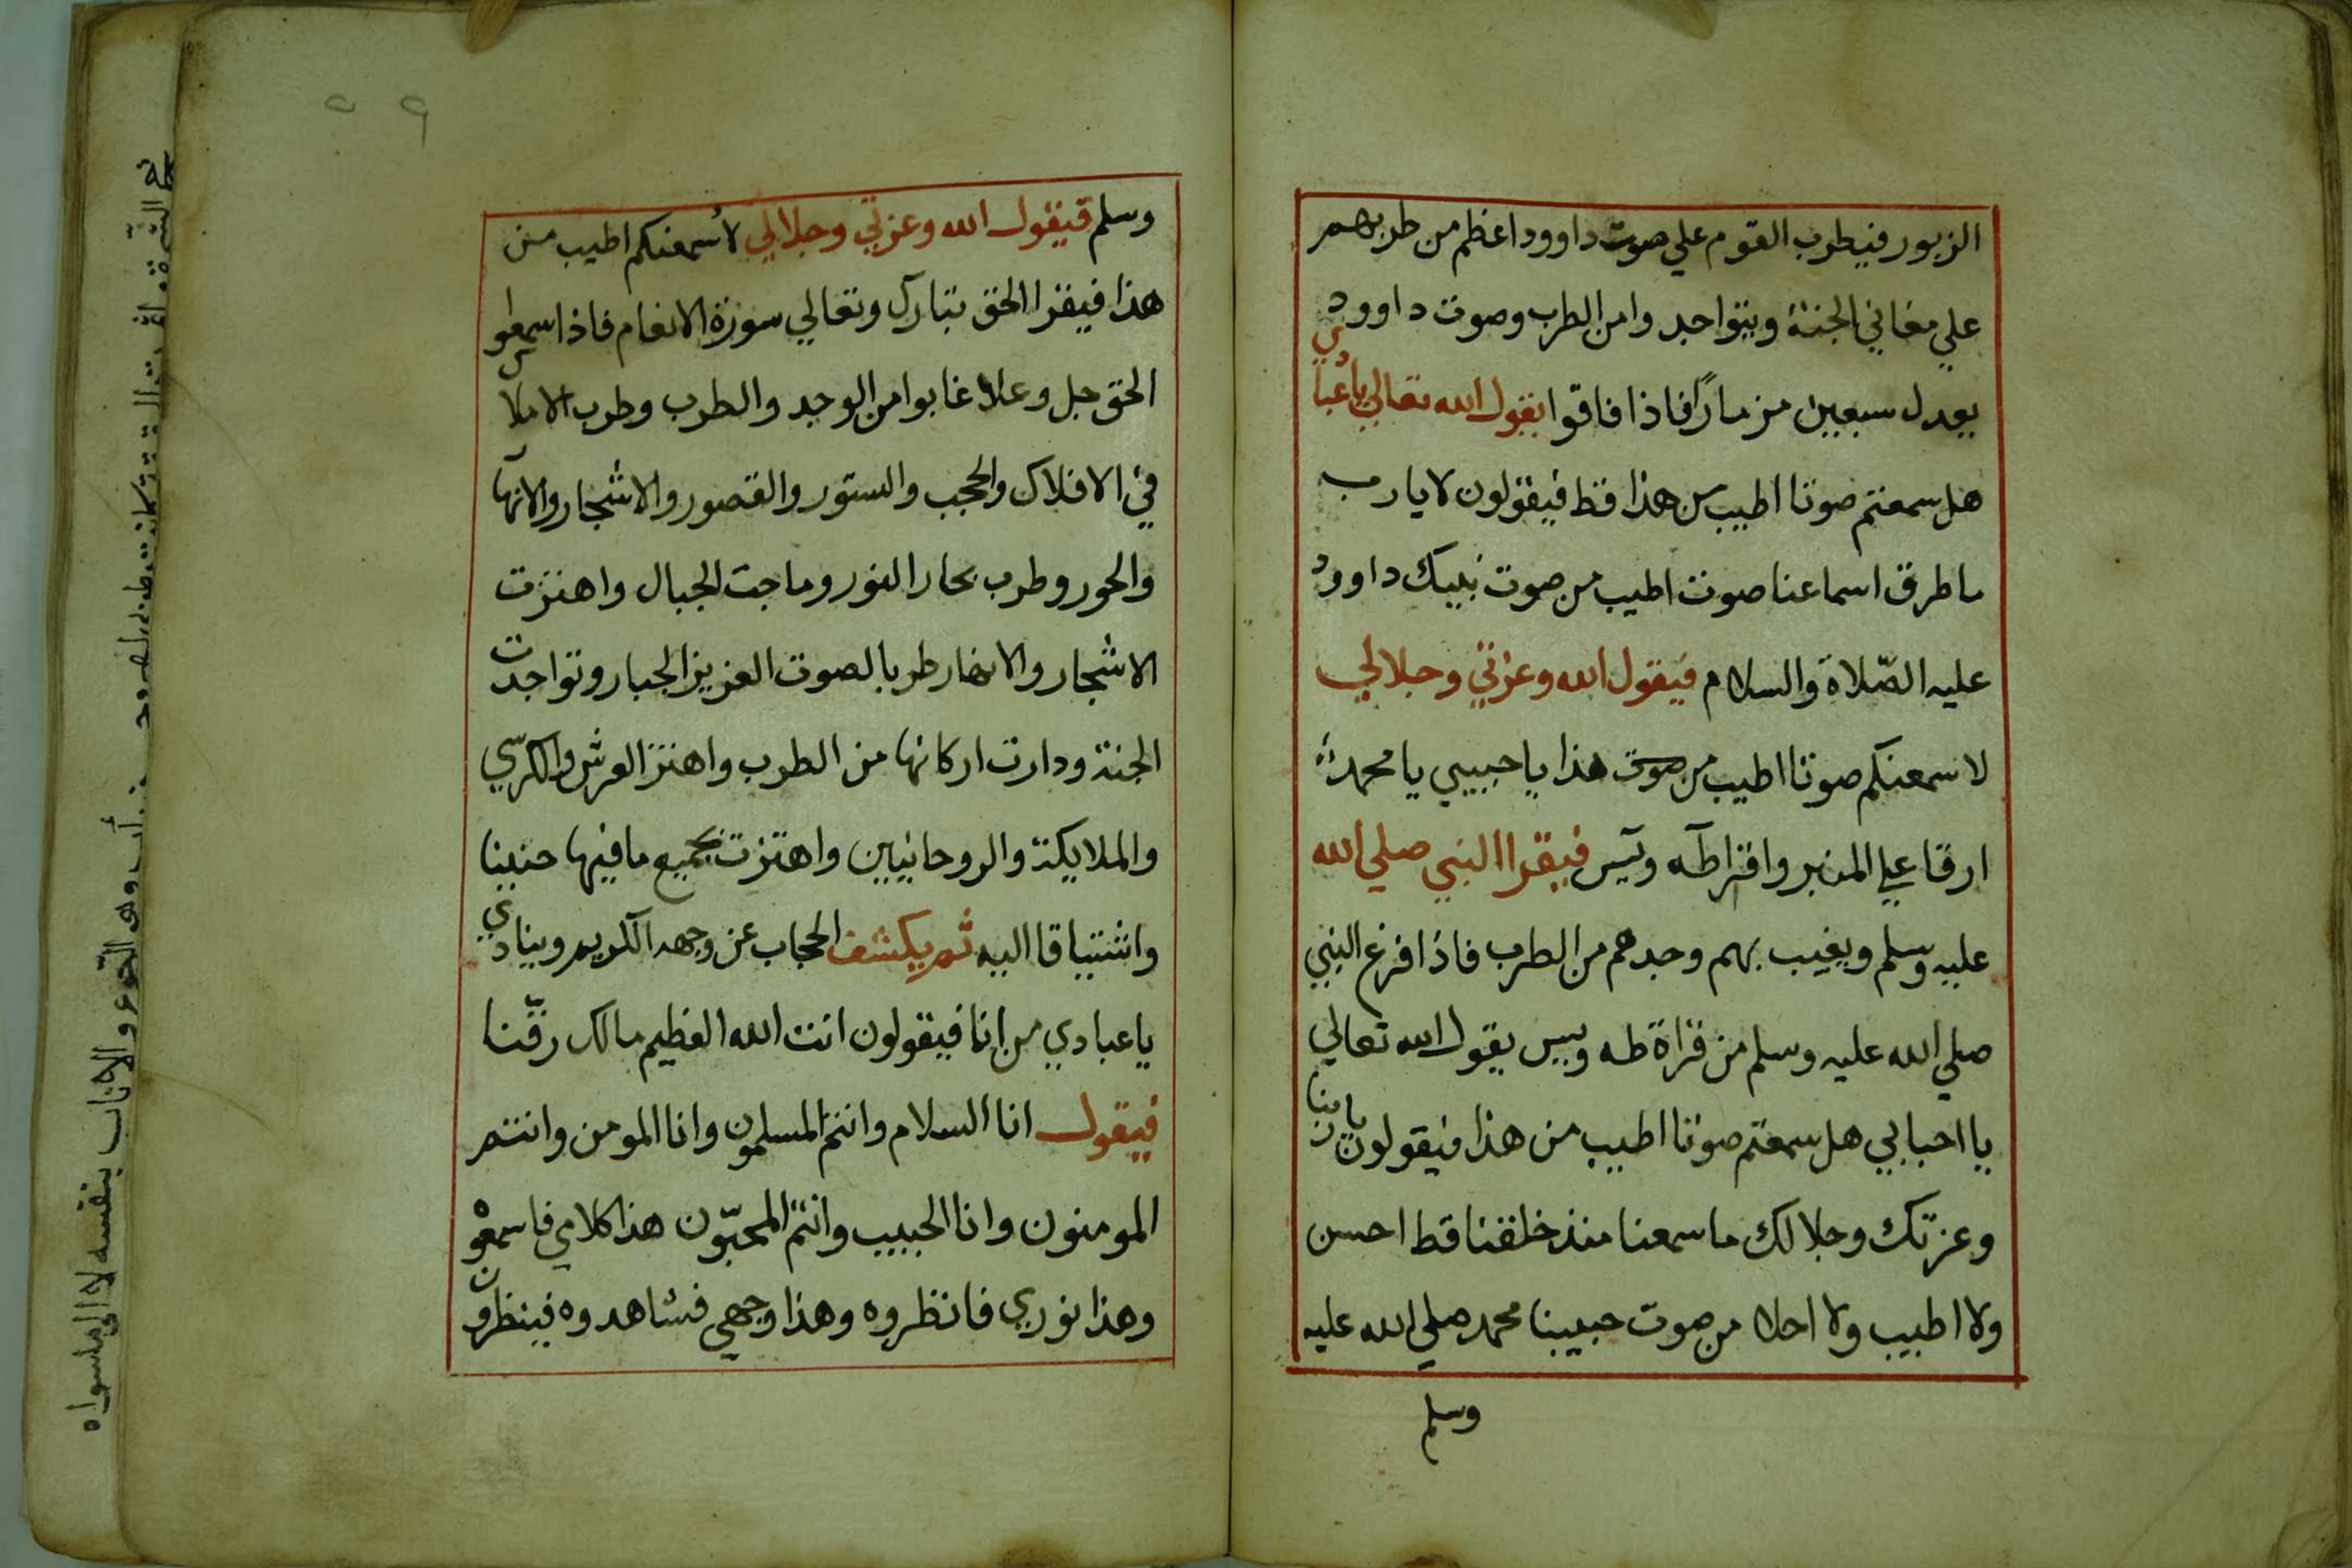 الزبور فيطرب القوم علي صوت داوود اعظم من طربهم
علي مغاني الجنة ويتواجدوا من الطرب وصوت داوود
يعدل سبعين مزمارًا فاذا فاقوا يقول الله تعالي ياعُبادي
هل سمعتم صوتا اطيب من هذا قط فيقولون لا يارب
ما طرق اسماعنا صوت اطيب من صوت نبيك داوود
عليه الصّلاة والسلام فيقول الله وعزتي وجلالي
لاسمعنكم صوتا اطيب من صوت هذا يا حبيبي يا محمد
ارقا علي المنبر واقرا طه ويس فيقرا النبي صلي الله
عليه وسلم ويغيب بهم وجدهم من الطرب فاذا فرغ النبي
صلي الله عليه وسلم من قراة طه ويس يقول الله تعالي
يا احبابي هل سمعتم صوتا اطيب من هذا فيقولون ياربنا
وعزتك وجلالك ما سمعنا منذ خلقتنا قط احسن
ولا اطيب ولا احلا من صوت حبيبنا محمد صلي الله عليه
وسلم
وسلم فيقول الله وعزتي وجلالي لأسمعنكم اطيب من
هذا فيقرا الحق تبارك وتعالي سورة الانعام فاذا سمعوا
الحق جل وعلا غابوا من الوجد والطرب وطرب الاملاك
في الافلاك والحجب والستور والقصور والاشجار والانهار
والحور وطرب بحار النور وماجت الجبال واهتزت
الاشجار والانهار طربا لصوت العزيز الجبار وتواجدت
الجنة ودارت اركانها من الطرب واهتز العرش والكرسي
والملايكة والروحانيين واهتزت بجميع ما فيها حنينا
واشتياقا اليه ثم يكشف الحجاب عن وجهه الكريم وينادي
يا عبادي من انا فيقولون انت الله العظيم مالك رقّنا
فيقول انا السلام وانتم المسلمون وانا المومن وانتم
المومنون وانا الحبيب وانتم المحبّون هذا كلامي فاسمعوْ
وهذا نوري فانظروه وهذا وجهي فشاهدوه فينظرون